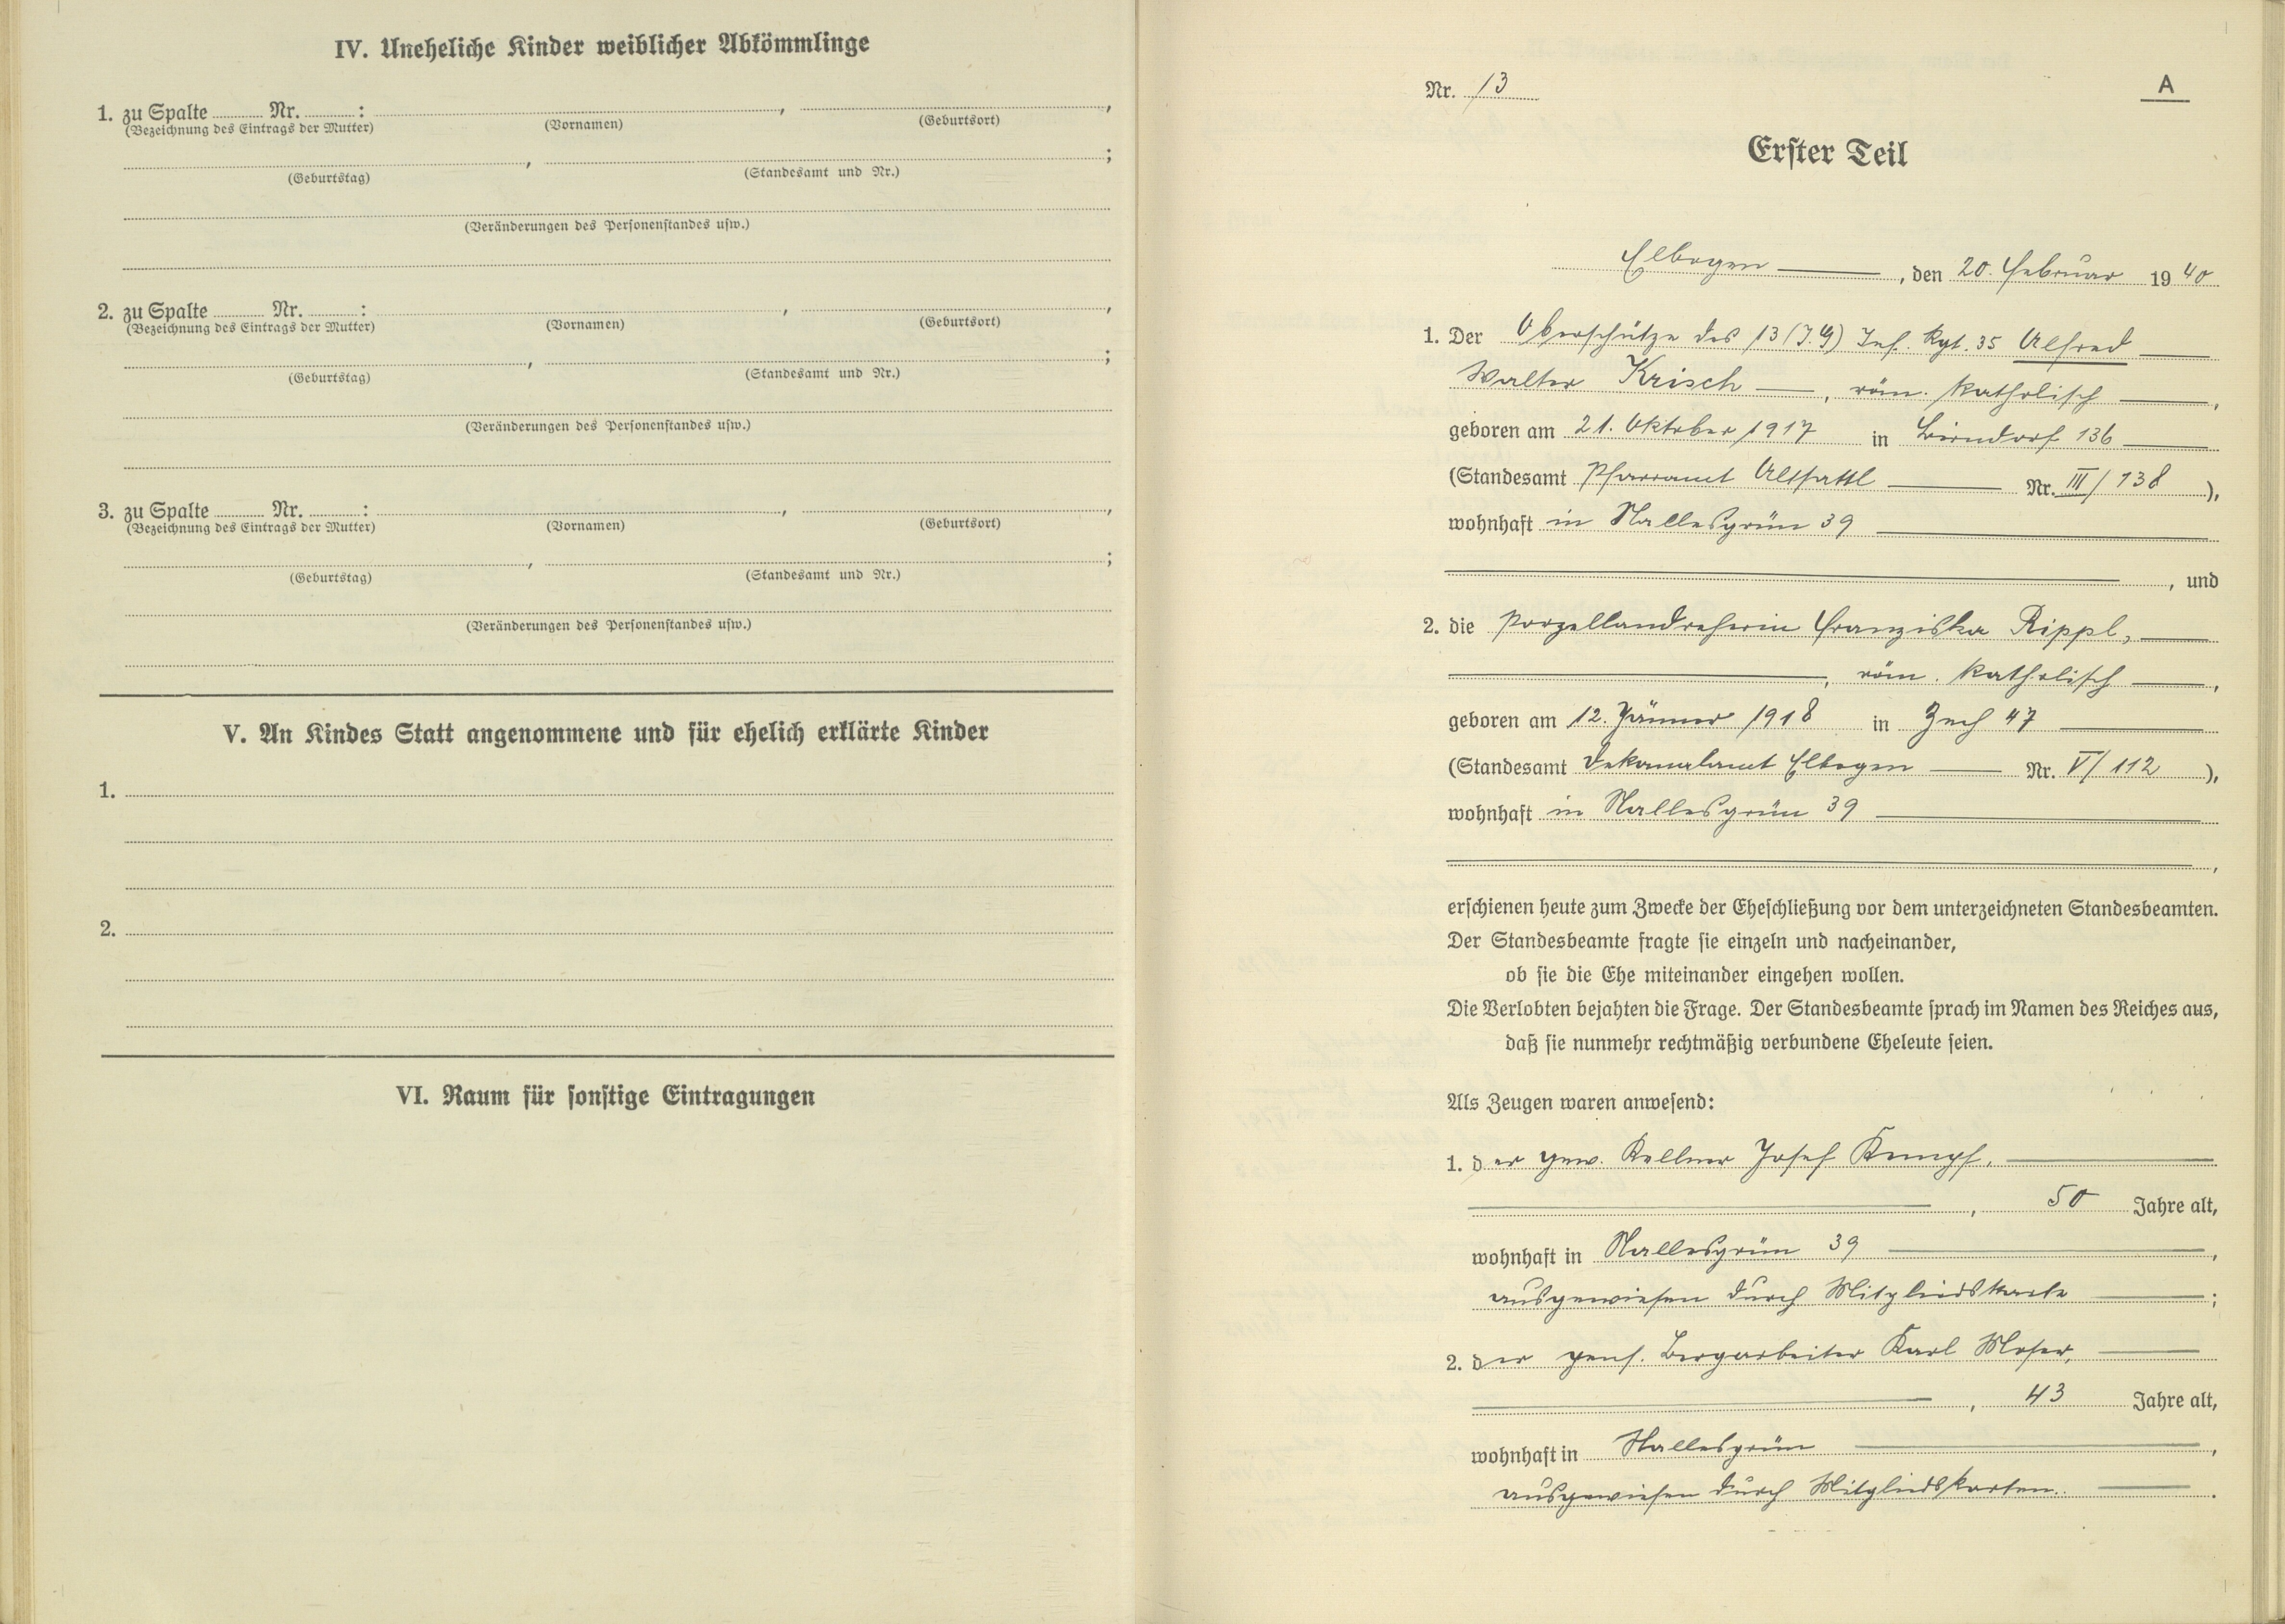 IV. Uneheliche Kinder weiblicher Abkömmlinge
1. zu Spalte ........ Nr. ........ : ........ , ........ ,
(Bezeichnung des Eintrags der Mutter) (Vornamen) (Geburtsort)
........ , ........ ;
(Geburtstag) (Standesamt und Nr.)
(Veränderungen des Personenstandes usw.)
2. zu Spalte ........ Nr. ........ : ........ , ........ ,
(Bezeichnung des Eintrags der Mutter) (Vornamen) (Geburtsort)
........ , ........ ;
(Geburtstag) (Standesamt und Nr.)
(Veränderungen des Personenstandes usw.)
3. zu Spalte ........ Nr. ........ : ........ , ........ ,
(Bezeichnung des Eintrags der Mutter) (Vornamen) (Geburtsort)
........ , ........ ;
(Geburtstag) (Standesamt und Nr.)
(Veränderungen des Personenstandes usw.)
V. An Kindes Statt angenommene und für ehelich erklärte Kinder
1.
2.
VI. Raum für sonstige Eintragungen
Nr. 13 A
Erster Teil
Elbogen, den 20. Februar 1940
1. Der Oberschütze des 13 (J.G) Inf. Rgt. 35 Alfred
Walter Krisch, röm. katholisch,
geboren am 21. Oktober 1917 in Birndorf 136
(Standesamt Pfarramt Altsattl Nr. III/138),
wohnhaft in Nallesgrün 39
, und
2. die Porzellandreherin Franziska Rippl,
, röm. katholisch,
geboren am 12. Jänner 1918 in Zech 47
(Standesamt Dekanalamt Elbogen Nr. V/112),
wohnhaft in Nallesgrün 39
,
erschienen heute zum Zwecke der Eheschließung vor dem unterzeichneten Standesbeamten.
Der Standesbeamte fragte sie einzeln und nacheinander,
ob sie die Ehe miteinander eingehen wollen.
Die Verlobten bejahten die Frage. Der Standesbeamte sprach im Namen des Reiches aus,
daß sie nunmehr rechtmäßig verbundene Eheleute seien.
Als Zeugen waren anwesend:
1. der gew. Kellner Josef Kempf,
, 50 Jahre alt,
wohnhaft in Nallesgrün 39,
ausgewiesen durch Mitgliedskarte;
2. der pens. Bergarbeiter Karl Moser,
, 43 Jahre alt,
wohnhaft in Nallesgrün,
ausgewiesen durch Mitgliedskarten.